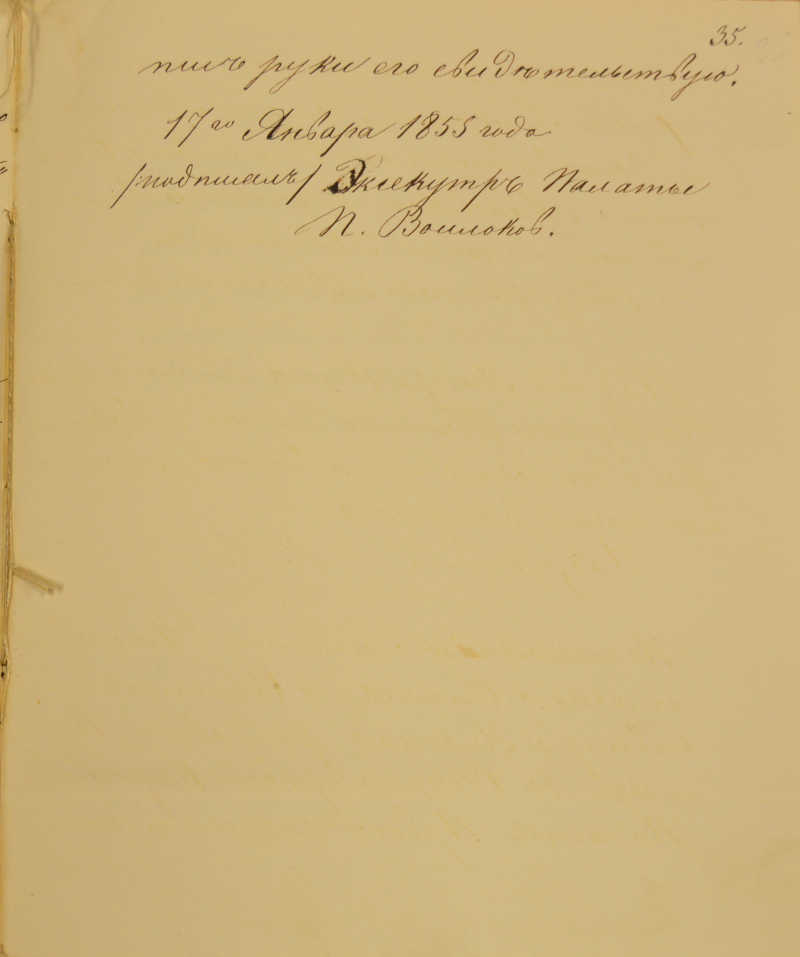 35.
пись руки его свидѣтельствую.
17го Января 1855 года
/:подписалъ/ Экзекуторъ Палаты
П. Войлоков.